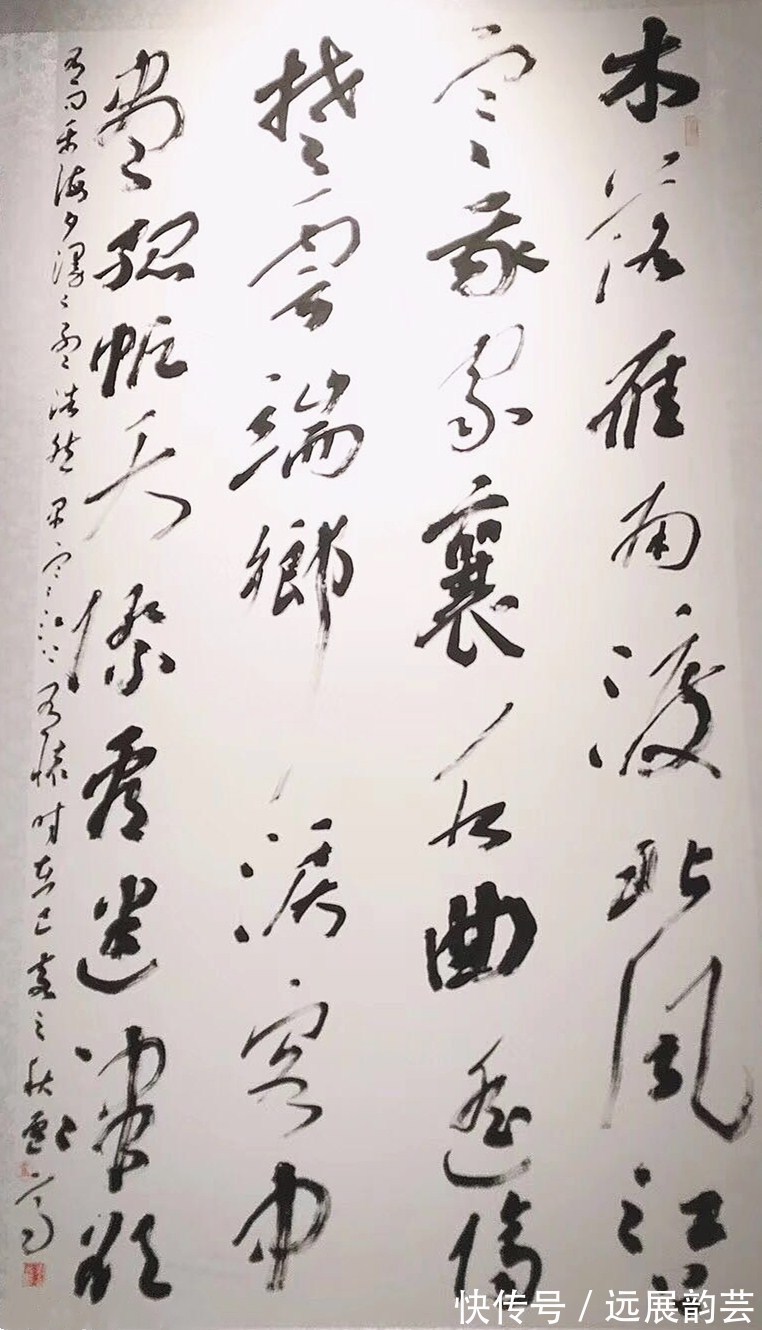 木落雁南渡北风江上
寒我家襄水曲遥隔
楚雲端鄉淚客中
盡孤帆天際看迷津欲
有问平海夕漫〻孟浩然早寒江上有懷时在己亥之秋
快传号 / 远展韵芸